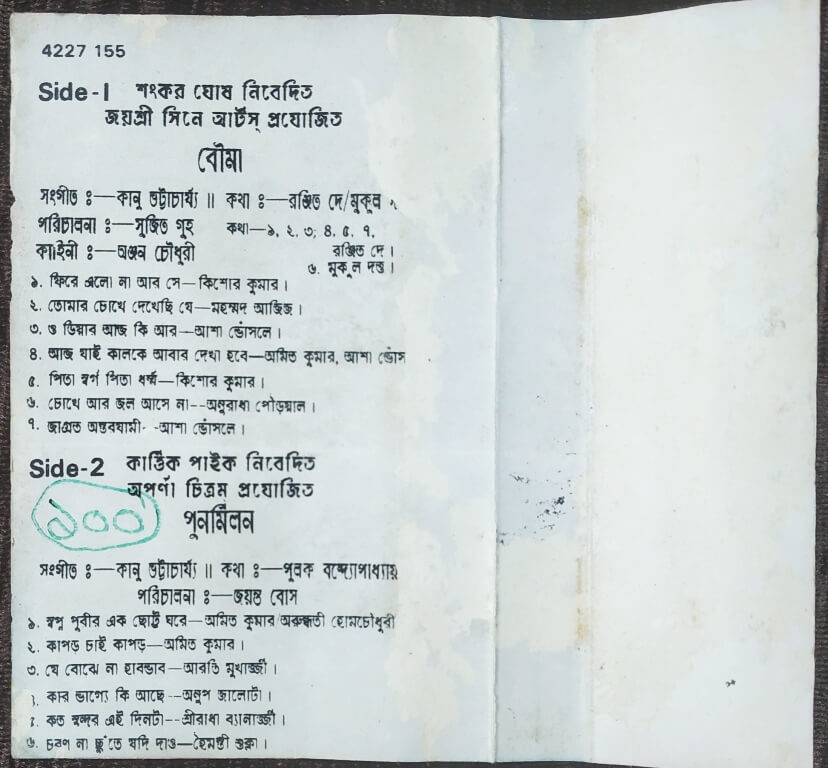 4227 155
Side-I শংকর ঘোষ নিবেদিত
জয়শ্রী সিনে আর্টস্ প্রযোজিত
বৌমা
সংগীত ঃ—কানু ভট্টাচার্য্য ॥ কথা ঃ—রঞ্জিত দে/মুকুল
পরিচালনা ঃ—সুজিত গুহ কথা—১, ২, ৩; ৪, ৫, ৭,
কাহিনী ঃ—অঞ্জন চৌধুরী রঞ্জিত দে।
৬. মুকুল দত্ত।
১. ফিরে এলো না আর সে—কিশোর কুমার।
২. তোমার চোখে দেখেছি যে—মহম্মদ আজিজ।
৩. ও ডিয়ার আজ কি আর—আশা ভোঁসলে।
৪. আজ যাই কালকে আবার দেখা হবে—অমিত কুমার, আশা ভোঁস
৫. পিতা স্বর্গ পিতা ধর্ম্ম—কিশোর কুমার।
৬. চোখে আর জল আসে না--অনুরাধা পোড়য়াল।
৭. জাগ্রত অন্তরযামী- -আশা ভোঁসলে।
Side-2 কার্ত্তিক পাইক নিবেদিত
অপর্ণা চিত্রম প্রযোজিত
১০০
পুনর্মিলন
সংগীত ঃ—কানু ভট্টাচার্য্য ॥ কথা ঃ—পুলক বন্দ্যোপাধ্যায়
পরিচালনা ঃ—জয়ন্ত বোস
১. স্বপ্ন পুরীর এক ছোট্ট ঘরে—অমিত কুমার/অরুন্ধতী হোমচৌধুরী
২. কাপড় চাই কাপড়—অমিত কুমার।
৩. যে বোঝে না হাবভাব—আরতি মুখার্জ্জী।
কার ভাগ্যে কি আছে--অনুপ জালোটা।
কত সুন্দর এই দিনটা--শ্রীরাধা ব্যানার্জ্জী।
৬. চরণ না ছুঁতে যদি দাও—হৈমন্তী শুক্লা।